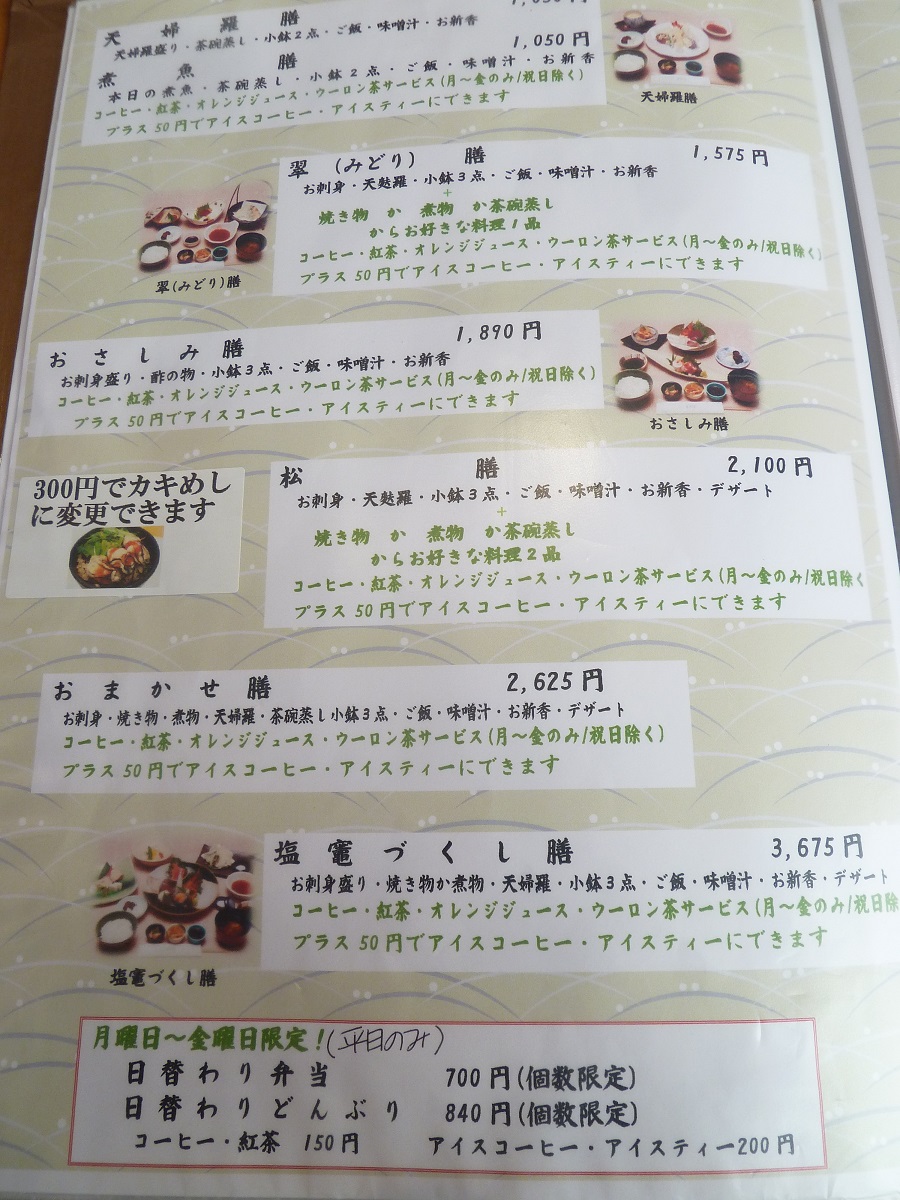 天婦羅膳
天婦羅盛り・茶碗蒸し・小鉢2点・ご飯・味噌汁・お新香
煮魚膳 1,050円
本日の煮魚・茶碗蒸し・小鉢2点・ご飯・味噌汁・お新香
コーヒー・紅茶・オレンジジュース・ウーロン茶サービス(月〜金のみ/祝日除く)
プラス50円でアイスコーヒー・アイスティーにできます
天婦羅膳
翠(みどり)膳 1,575円
お刺身・天麩羅・小鉢3点・ご飯・味噌汁・お新香
+
焼き物 か 煮物 か茶碗蒸し
からお好きな料理1品
コーヒー・紅茶・オレンジジュース・ウーロン茶サービス(月〜金のみ/祝日除く)
プラス50円でアイスコーヒー・アイスティーにできます
翠(みどり)膳
おさしみ膳 1,890円
お刺身盛り・酢の物・小鉢3点・ご飯・味噌汁・お新香
コーヒー・紅茶・オレンジジュース・ウーロン茶サービス(月〜金のみ/祝日除く)
プラス50円でアイスコーヒー・アイスティーにできます
おさしみ膳
300円でカキめし
に変更できます
松膳 2,100円
お刺身・天麩羅・小鉢3点・ご飯・味噌汁・お新香・デザート
+
焼き物 か 煮物 か茶碗蒸し
からお好きな料理2品
コーヒー・紅茶・オレンジジュース・ウーロン茶サービス(月〜金のみ/祝日除く
プラス50円でアイスコーヒー・アイスティーにできます
おまかせ膳 2,625円
お刺身・焼き物・煮物・天婦羅・茶碗蒸し小鉢3点・ご飯・味噌汁・お新香・デザート
コーヒー・紅茶・オレンジジュース・ウーロン茶サービス(月〜金のみ/祝日除く)
プラス50円でアイスコーヒー・アイスティーにできます
塩竈づくし膳 3,675円
お刺身盛り・焼き物か煮物・天婦羅・小鉢3点・ご飯・味噌汁・お新香・デザート
コーヒー・紅茶・オレンジジュース・ウーロン茶サービス(月〜金のみ/祝日除
プラス50円でアイスコーヒー・アイスティーにできます
塩竈づくし膳
月曜日〜金曜日限定!(平日のみ)
日替わり弁当 700円(個数限定)
日替わりどんぶり 840円(個数限定)
コーヒー・紅茶 150円 アイスコーヒー・アイスティー200円